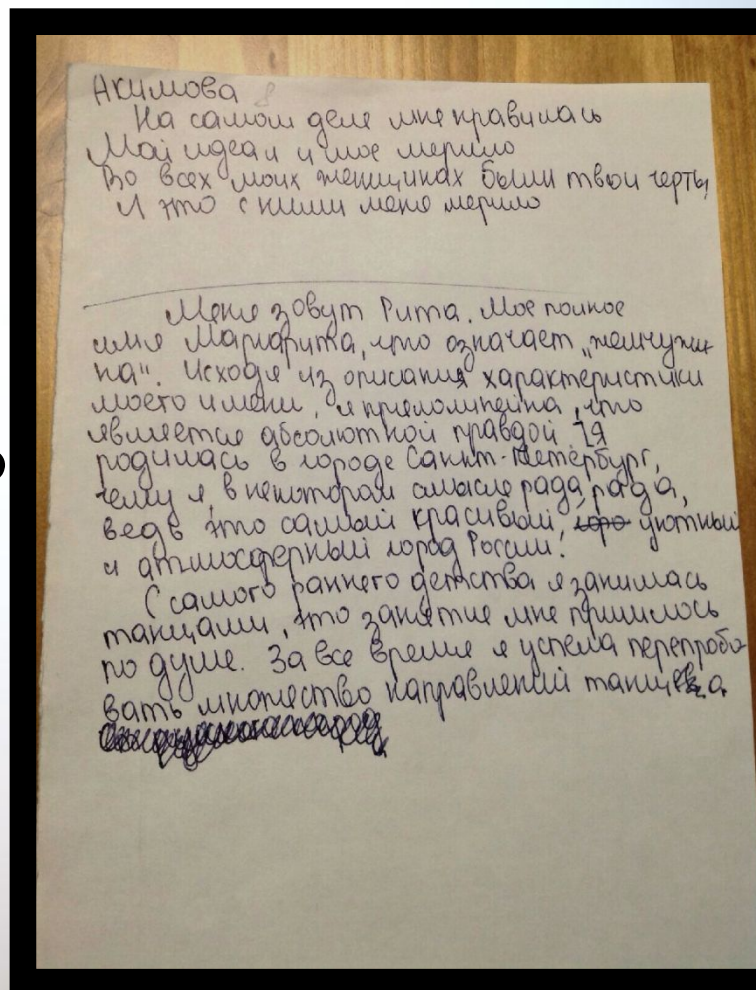 Акимова 8
На самом деле мне нравилась
Мой идеал и мое мерило
Во всех моих женщинах были твои черты
И это с ними меня мерило
Меня зовут Рита. Мое полное
имя Маргарита, что означает „жемчужи-
на“. Исходя из описания характеристики
моего имени, я прямолинейна, что
является абсолютной правдой. Я
родилась в городе Санкт-Петербург,
чему я, в некотором смысле рада, рада,
ведь это самый красивый, уютный
и атмосферный город России!
С самого раннего детства я занималась
танцами, это занятие мне пришлось
по душе. За все время я успела перепробо
вать множество направлений танца